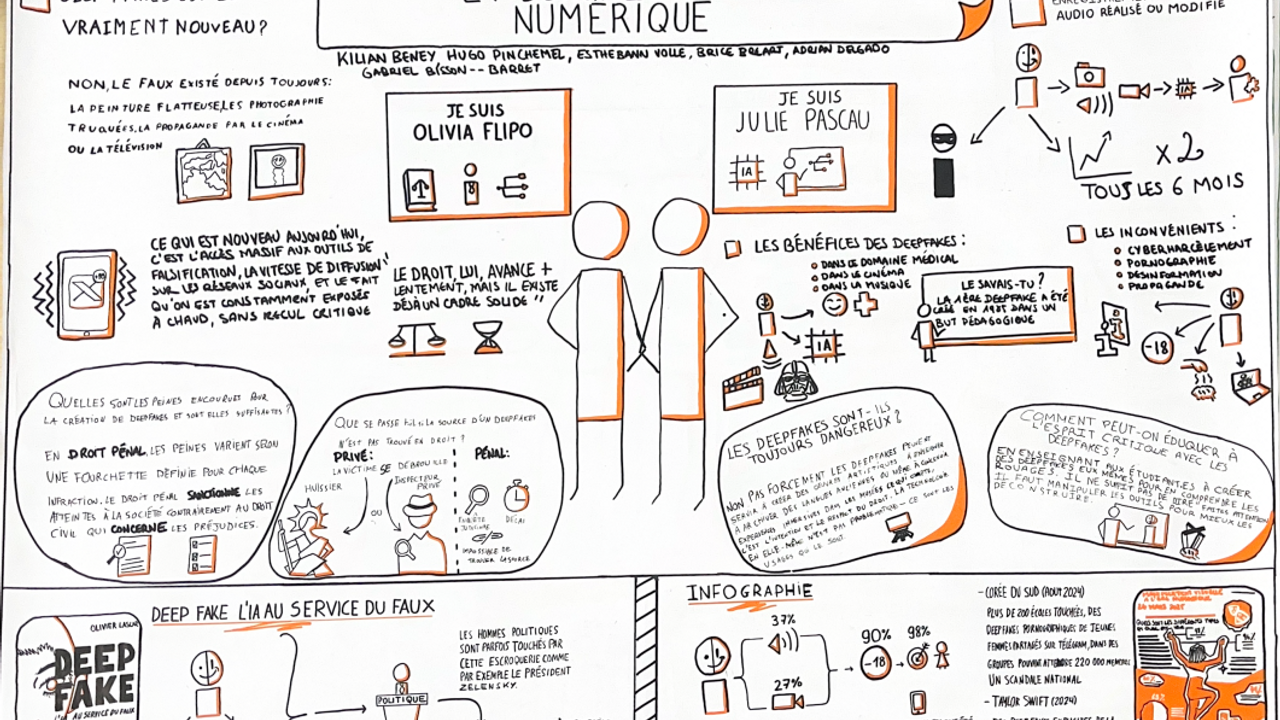 VRAIMENT NOUVEAU?
NUMÉRIQUE
AUDIO RÉALISÉ OU MODIFIÉ
KILIAN BENEY HUGO PINCHEMEL, ESTHEBANN VOLLE, BRICE BRLART, ADRIAN DELGADO
GABRIEL BISSON -- BARRET
NON, LE FAUX EXISTÉ DEPUIS TOUJOURS:
LA PEINTURE FLATTEUSE, LES PHOTOGRAPHIE
TRUQUÉES, LA PROPAGANDE PAR LE CINÉMA
OU LA TÉLÉVISION
JE SUIS
OLIVIA FLIPO
JE SUIS
JULIE PASCAU
IA
X2
TOUS LES 6 MOIS
CE QUI EST NOUVEAU AUJOURD'HUI,
C'EST L'ACCÈS MASSIF AUX OUTILS DE
FALSIFICATION, LA VITESSE DE DIFFUSION
SUR LES RÉSEAUX SOCIAUX, ET LE FAIT
QU'ON EST CONSTAMMENT EXPOSÉS
À CHAUD, SANS RECUL CRITIQUE
LE DROIT, LUI, AVANCE +
LENTEMENT, MAIS IL EXISTE
DÉJÀ UN CADRE SOLIDE "
LES BÉNÉFICES DES DEEPFAKES:
DANS LE DOMAINE MÉDICAL
DANS LE CINÉMA
DANS LA MUSIQUE
IA
LE SAVAIS-TU?
LA 1ÈRE DEEPFAKE A ÉTÉ
CRÉÉ EN 1985 DANS UN
BUT PÉDAGOGIQUE
LES INCONVÉNIENTS:
CYBERHARCÈLEMENT
PORNOGRAPHIE
DÉSINFORMATION
PROPAGANDE
-18
QUELLES SONT LES PEINES ENCOURUES POUR
LA CRÉATION DE DEEPFAKES ET SONT ELLES SUFFISANTES?
EN DROIT PÉNAL, LES PEINES VARIENT SELON
UNE FOURCHETTE DÉFINIE POUR CHAQUE
INFRACTION. LE DROIT PÉNAL SANCTIONNE LES
ATTEINTES À LA SOCIÉTÉ CONTRAIREMENT AU DROIT
CIVIL QUI CONCERNE LES PRÉJUDICES.
QUE SE PASSE LA SOURCE D'UN DEEPFAKES
N'EST PAS TROUVÉ EN DROIT?
PRIVÉ:
LA VICTIME SE DÉBROUILLE
HUISSIER
OU
INSPECTEUR
PRIVÉ
PÉNAL:
ENQUÊTE
JUDICIAIRE
DÉLAI
IMPOSSIBLE DE
TROUVER LA SOURCE
LES DEEPFAKES SONT-ILS
TOUJOURS DANGEREUX?
NON PAS FORCEMENT LES DEEPFAKES PEUVENT
SERVIR À CRÉER DES OEUVRES ARTISTIQUES, À ENSEIGNER
À ARCHIVER DES LANGUES ANCIENNES OU MÊME À CRÉER DES
EXPÉRIENCES IMMERSIVES DANS LES MUSÉES CE QUI COMPTE,
C'EST L'INTENTION ET LE RESPECT DU DROIT. LA TECHNOLOGIE
EN ELLE-MÊME N'EST PAS PROBLÉMATIQUE CE SONT LES
USAGES QUI LE SONT
COMMENT PEUT-ON ÉDUQUER À
L'ESPRIT CRITIQUE AVEC LES
DEEPFAKES?
EN ENSEIGNANT AUX ÉTUDIANTES À CRÉER
DES DEEPFAKES EUX MÊMES POUR EN COMPRENDRE LES
ROUAGES. IL NE SUFFIT PAS DE DIRE "FAITES ATTENTION
IL FAUT MANIPULER LES OUTILS POUR MIEUX LES
DÉCONSTRUIRE.
OLIVIER LASCAR
DEEP
FAKE
L'IA AU SERVICE DU FAUX
DEEP FAKE L'IA AU SERVICE DU FAUX
POLITIQUE
LES HOMMES POLITIQUES
SONT PARFOIS TOUCHÉS PAR
CETTE ESCROQUERIE COMME
PAR EXEMPLE LE PRÉSIDENT
ZELENSKY.
INFOGRAPHIE
37%
27%
90%
-18
98%
- CORÉE DU SUD (AOUT 2024)
PLUS DE 200 ÉCOLES TOUCHÉS, DES
DEEPFAKES PORNOGRAPHIQUES DE JEUNES
FEMMES PARTAGÉS SUR TÉLÉGRAM, DANS DES
GROUPES POUVANT ATTEINDRE 220 000 MEMBRES
UN SCANDALE NATIONAL
- TAYLOR SWIFT (2024)